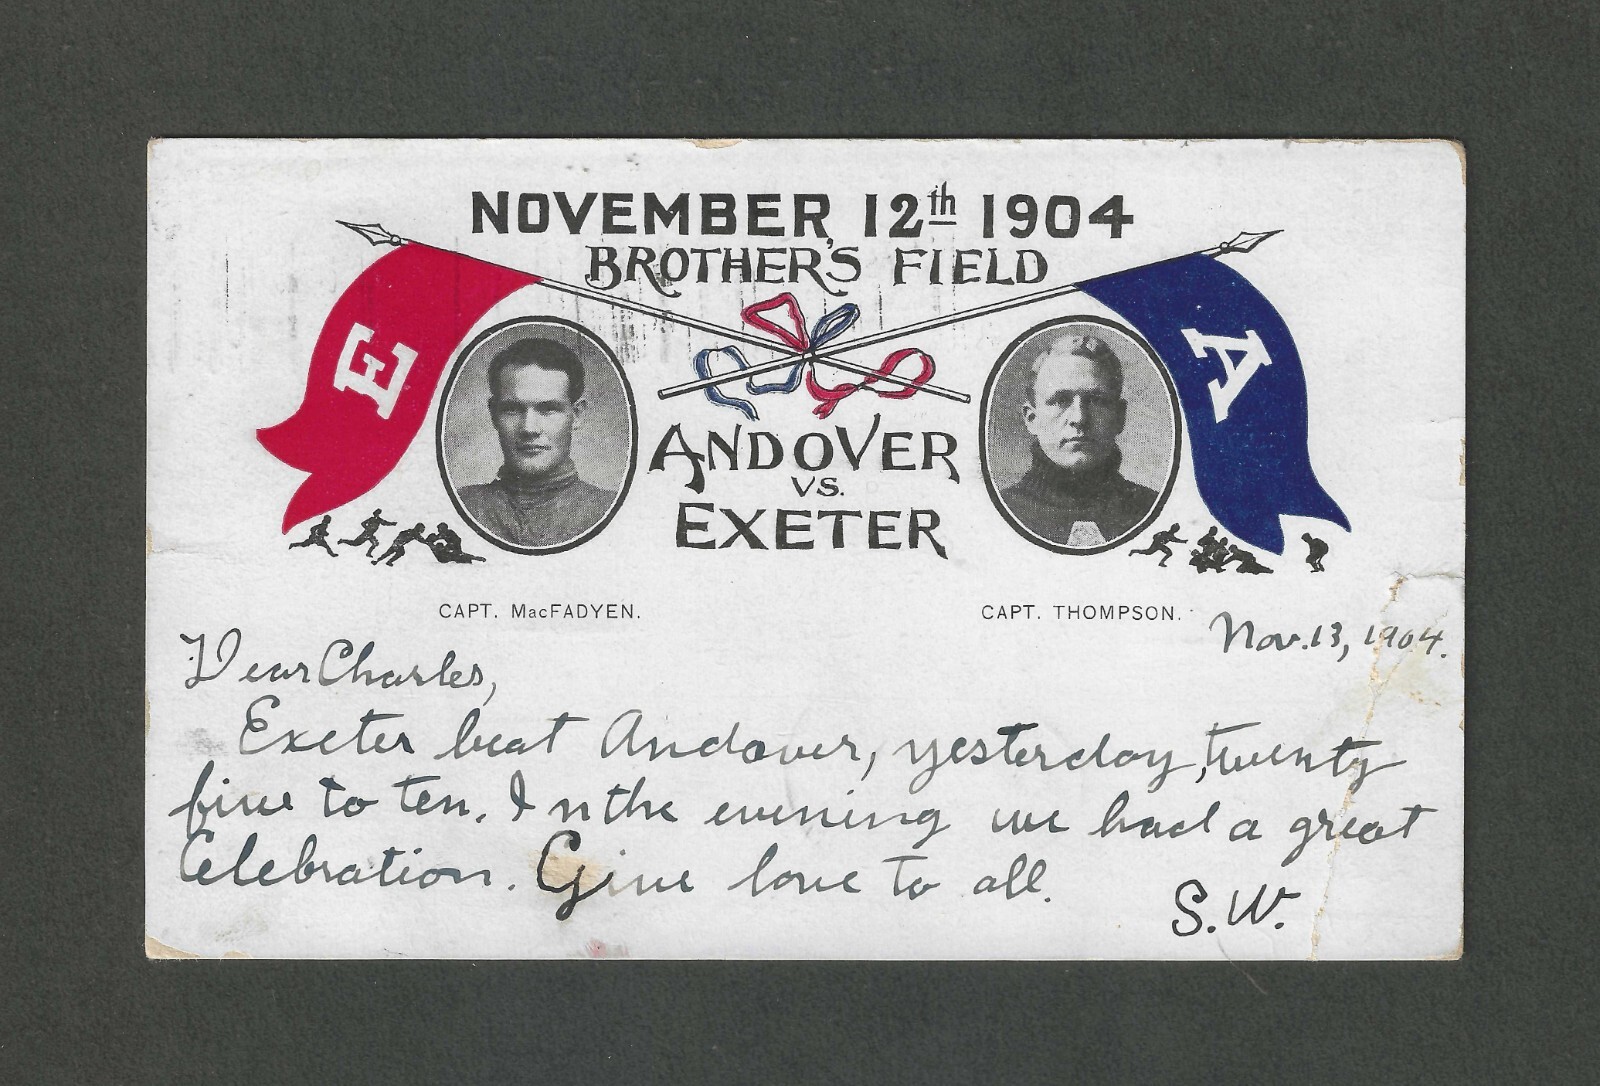 NOVEMBER 12th 1904
BROTHER'S FIELD
E
A
ANDOVER
VS.
EXETER
A
CAPT. MacFADYEN.
CAPT. THOMPSON.
Nov. 13, 1904.
Dear Charles,
Exeter beat Andover, yesterday, twenty
five to ten. In the evening we had a great
Celebration. Give love to all.
S.W.